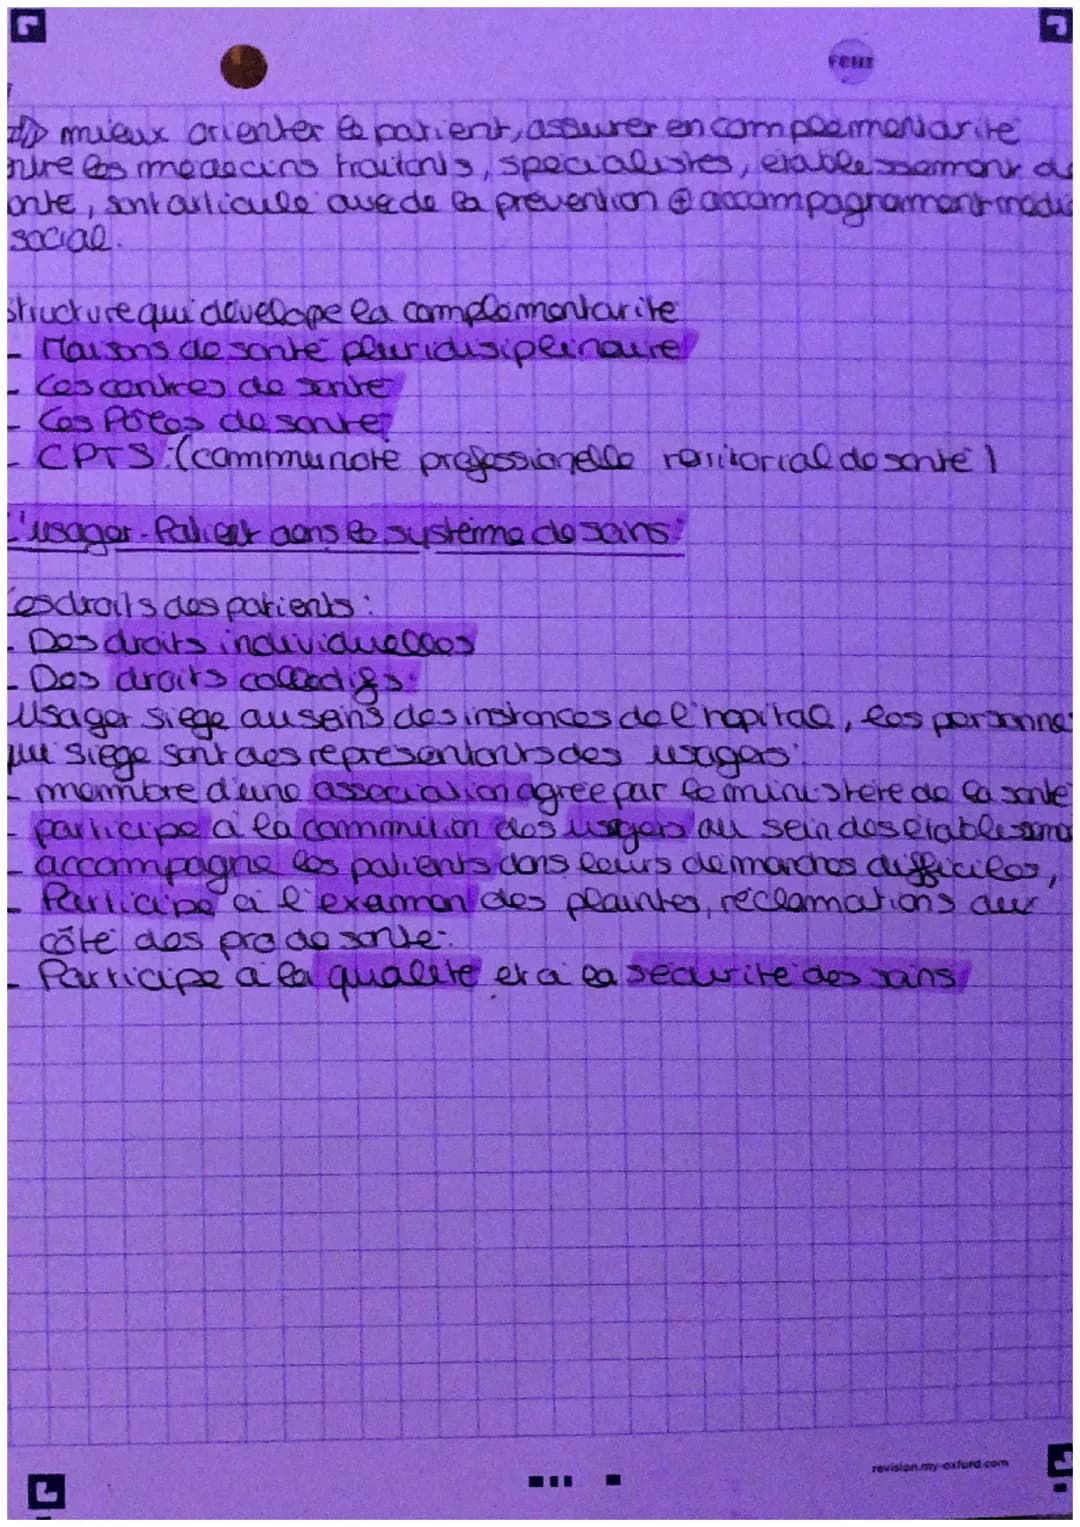 mieux orienter le patient, assurer en complementarite
entre les medecins traitants, specialistes, etablessement de
ante, sont articule avec de la prevention ⊕ accompagnement médic
social.
Structure qui develope la complementarite
- Maisons de sante pluridisiplinaire
- Les centres de sante
- Les Pôles de sante
- CPTS : (communote professionelle teritorial de sante)
L'usager - Patient dans le système de soins :
Les droits des patients :
- Des droits individuelles
- Des droits collectifs :
Usager siege au seins des instances de l'hopital, les personne
qui siege sont des representants des usagers :
- membre d'une association agree par le ministère de la sante
- participe a la commition des usagers au sein des etablessme
- accompagne les patients dans leurs demarches difficiles,
- Participe a l'examen des plaintes, réclamations aux
côté des pro de sante.
- Participe a la qualite et a la securite des soins
revision.my-oxford.com